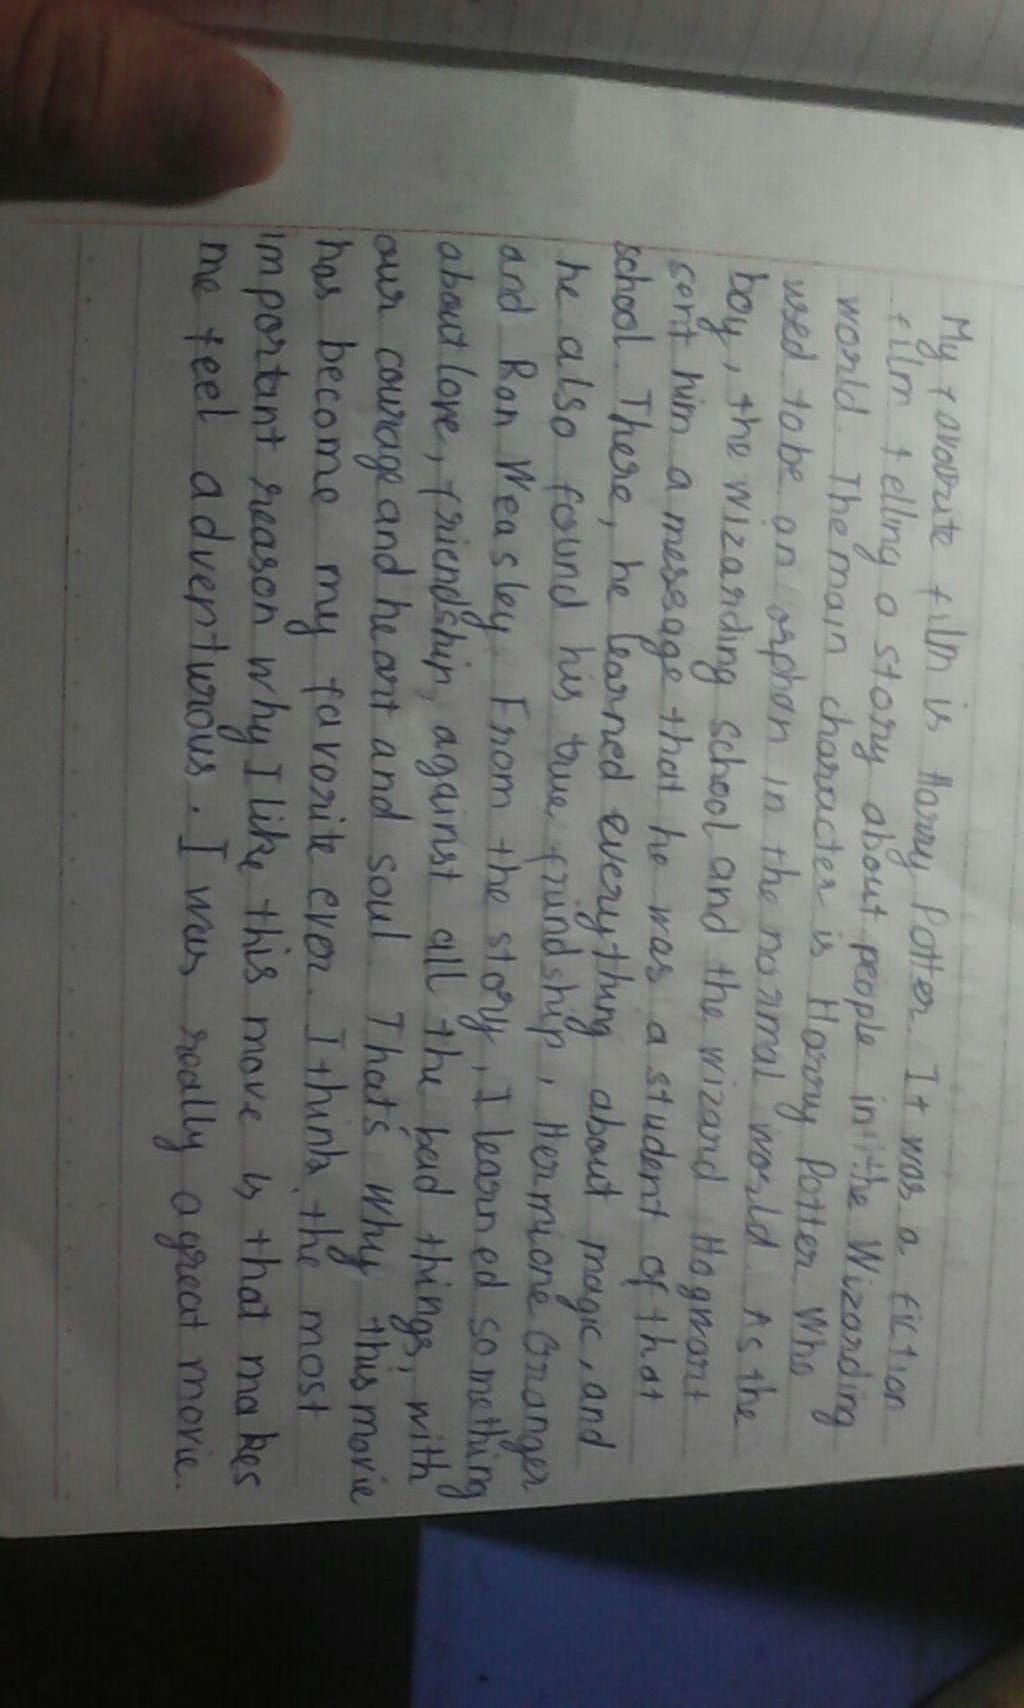 My favourite film is Harry Potter. It was a fiction
film telling a story about people in the Wizarding
world. The main character is Harry Potter who
used to be an orphan in the normal world. As the
boy, the wizarding school and the wizard Hogwart
sent him a message that he was a student of that
school. There, he learned everything about magic, and
he also found his true friundship, Hermione Granger
and Ron Weasley. From the story, I learned something
about love, friendship, against all the bad things, with
our courage and heart and soul. That's why this movie
has become my favorite ever. I think the most
important reason why I like this move is that makes
me feel adventurous. I was really a great movie.